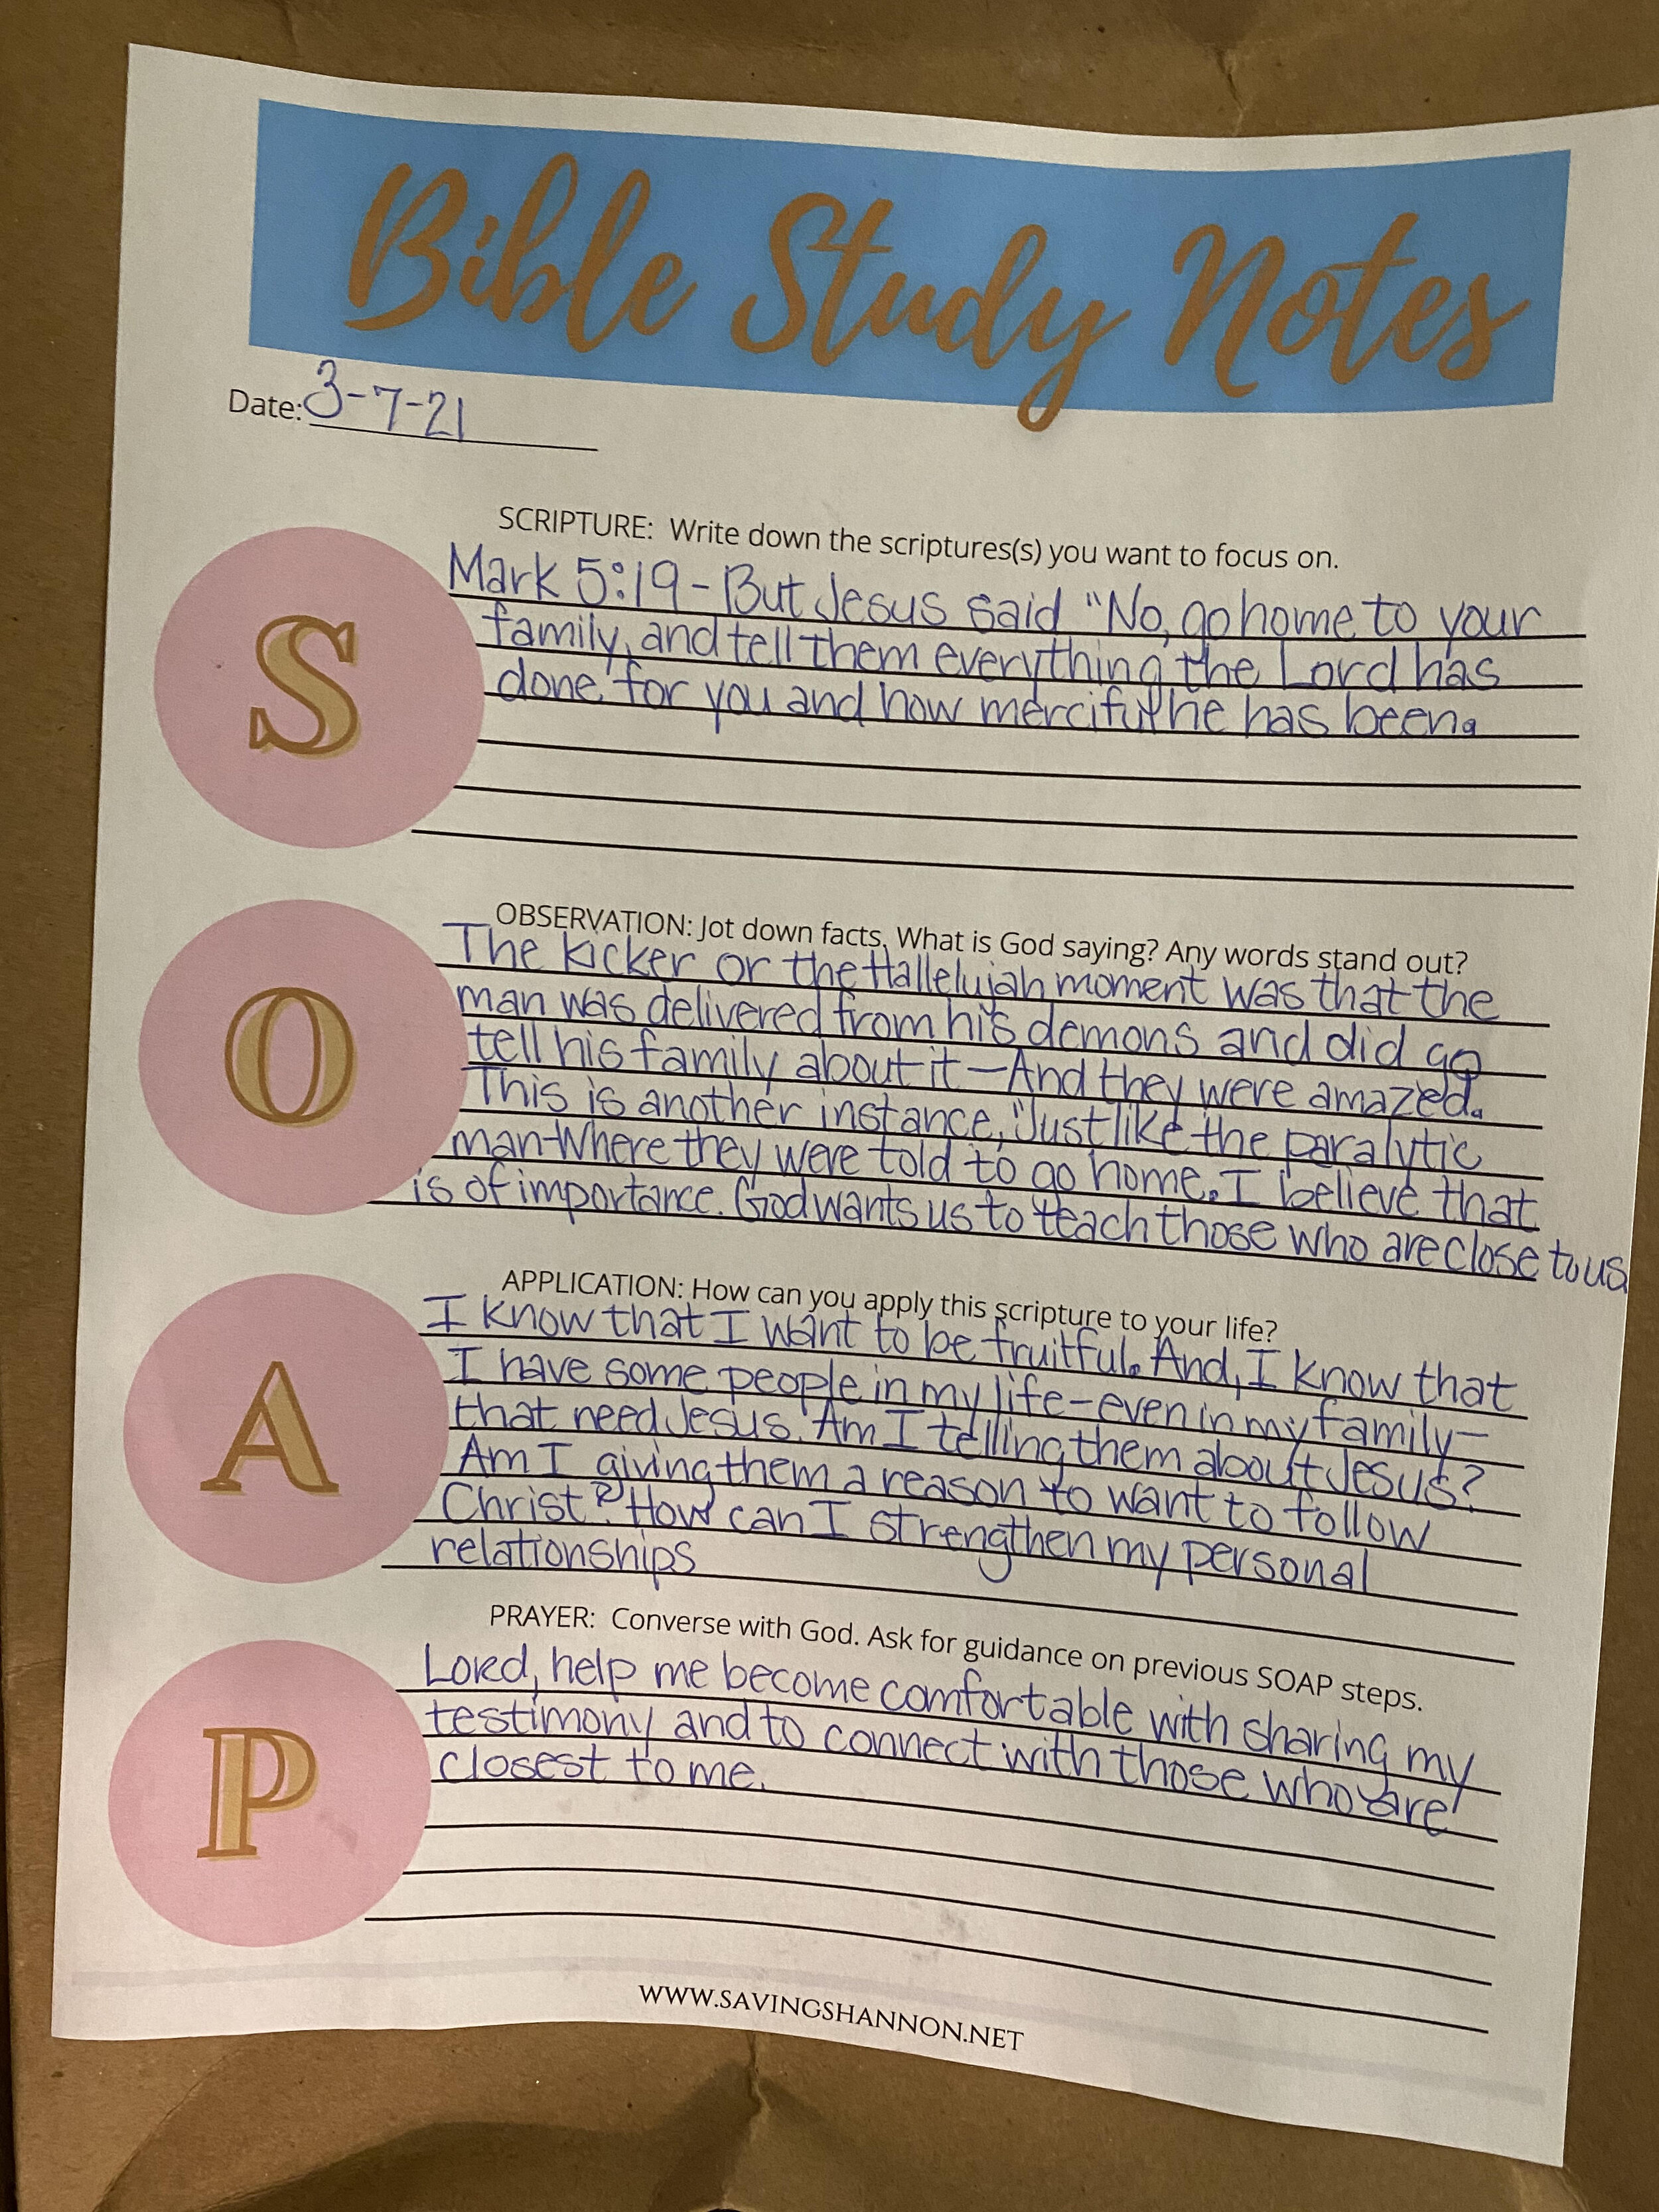 Bible Study Notes
Date: 3-7-21
SCRIPTURE: Write down the scriptures(s) you want to focus on.
S
Mark 5:19 - But Jesus said "No, go home to your
family, and tell them everything the Lord has
done for you and how merciful he has been.
OBSERVATION: Jot down facts. What is God saying? Any words stand out?
O
The kicker or the Hallelujah moment was that the
man was delivered from his demons and did go
tell his family about it - And they were amazed.
This is another instance, "Just like the paralytic
man - Where they were told to go home. I believe that
is of importance. God wants us to teach those who are close to us
APPLICATION: How can you apply this scripture to your life?
A
I know that I want to be fruitful. And, I know that
I have some people in my life - even in my family -
that need Jesus. Am I telling them about Jesus?
Am I giving them a reason to want to follow
Christ? How can I strengthen my personal
relationships
PRAYER: Converse with God. Ask for guidance on previous SOAP steps.
P
Lord, help me become comfortable with sharing my
testimony and to connect with those who are
closest to me.
WWW.SAVINGSHANNON.NET